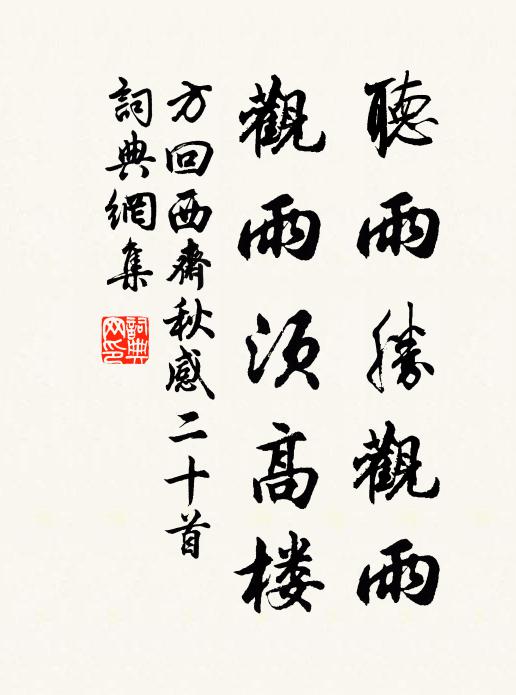 聽雨勝觀雨
觀雨須高楼
方回西齋秋感二十首
詞典網集
詞典网印